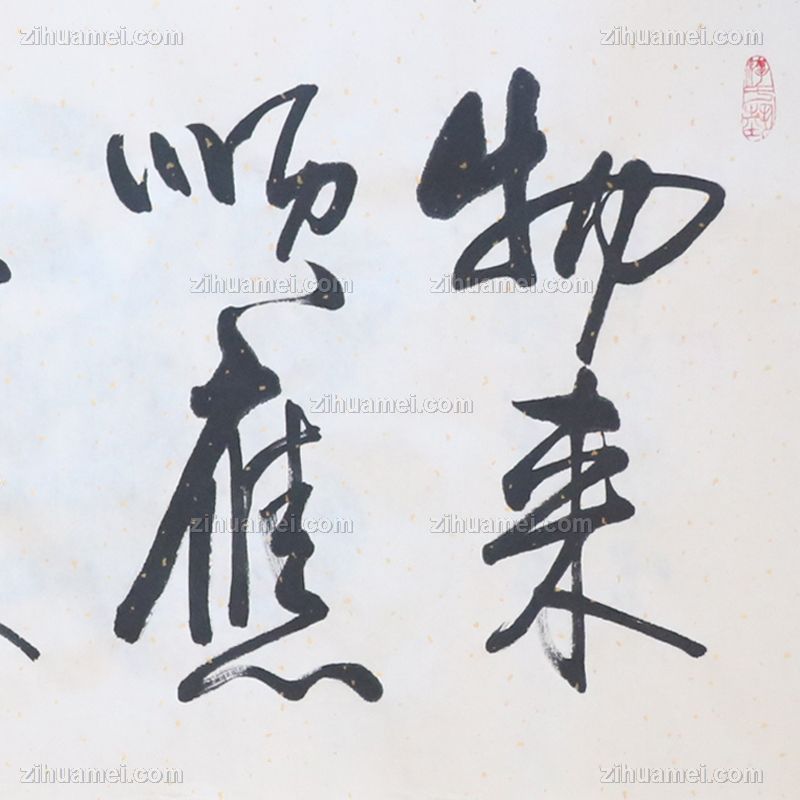 物来
顺應
zihuamei.com zihuamei.com
zihuamei.com zihuamei.com
zihuamei.com
zihuamei.com zihuamei.com
zihuamei.com zihuamei.com